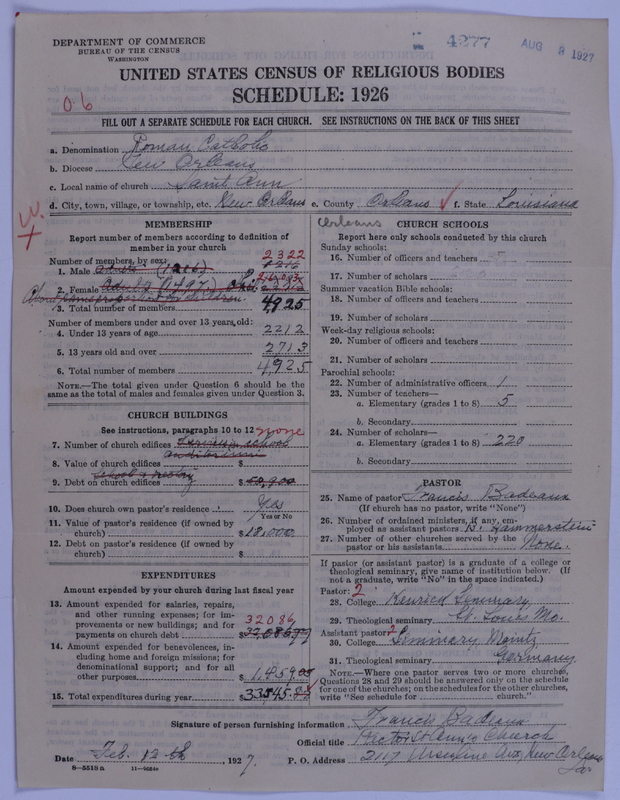 DEPARTMENT OF COMMERCE
BUREAU OF THE CENSUS
WASHINGTON
4277
AUG 8 1927
UNITED STATES CENSUS OF RELIGIOUS BODIES
SCHEDULE: 1926
0.6
FILL OUT A SEPARATE SCHEDULE FOR EACH CHURCH. SEE INSTRUCTIONS ON THE BACK OF THIS SHEET
a. Denomination Roman Catholic
b. Diocese New Orleans
c. Local name of church Saint Ann
d. City, town, village, or township, etc. New Orleans e. County Orleans f. State Louisiana
MEMBERSHIP
Report number of members according to definition of
member in your church
Number of members, by sex:
2322
1. Male Adults (1216) 1216
2. Female Adults (1497)
3. Total number of members 4925
Number of members under and over 13 years old:
4. Under 13 years of age 2212
5. 13 years old and over 2713
6. Total number of members 4925
NOTE.—The total given under Question 6 should be the
same as the total of males and females given under Question 3.
CHURCH BUILDINGS
See instructions, paragraphs 10 to 12 none
7. Number of church edifices
auditorium
8. Value of church edifices $
School & rectory
9. Debt on church edifices $
10. Does church own pastor's residence? Yes
Yes or No
11. Value of pastor's residence (if owned by
church) $18,000
12. Debt on pastor's residence (if owned by
church) $
EXPENDITURES
Amount expended by your church during last fiscal year
13. Amount expended for salaries, repairs,
and other running expenses; for im-
provements or new buildings; and for
32086
payments on church debt $
14. Amount expended for benevolences, in-
cluding home and foreign missions; for
denominational support; and for all
other purposes 1,459.00
15. Total expenditures during year $33545
Orleans
CHURCH SCHOOLS
Report here only schools conducted by this church
Sunday schools:
16. Number of officers and teachers
17. Number of scholars
Summer vacation Bible schools:
18. Number of officers and teachers
19. Number of scholars
Week-day religious schools:
20. Number of officers and teachers
21. Number of scholars
Parochial schools:
22. Number of administrative officers 1
23. Number of teachers—
a. Elementary (grades 1 to 8) 5
b. Secondary
24. Number of scholars—
a. Elementary (grades 1 to 8) 220
b. Secondary
PASTOR
25. Name of pastor Francis Badeaux
(If church has no pastor, write "None")
26. Number of ordained ministers, if any, em-
ployed as assistant pastors Hammerstein
27. Number of other churches served by the
pastor or his assistants None.
If pastor (or assistant pastor) is a graduate of a college or
theological seminary, give name of institution below. (If
not a graduate, write "No" in the space indicated.)
Pastor: 2
28. College Kenrick Seminary
29. Theological seminary St. Louis Mo.
Assistant pastor: 2
30. College Seminary Mainz
31. Theological seminary Germany
NOTE.—Where one pastor serves two or more churches,
Questions 28 and 29 should be answered only on the schedule
for one of the churches; on the schedules for the other churches,
write "See schedule for church."
Signature of person furnishing information Francis Badeaux
Official title Rector St Ann's Church
Date Feb. 12th, 1927. P. O. Address 2117 Ursuline Ave, New Orleans
La.
8—5518a 11—9684a